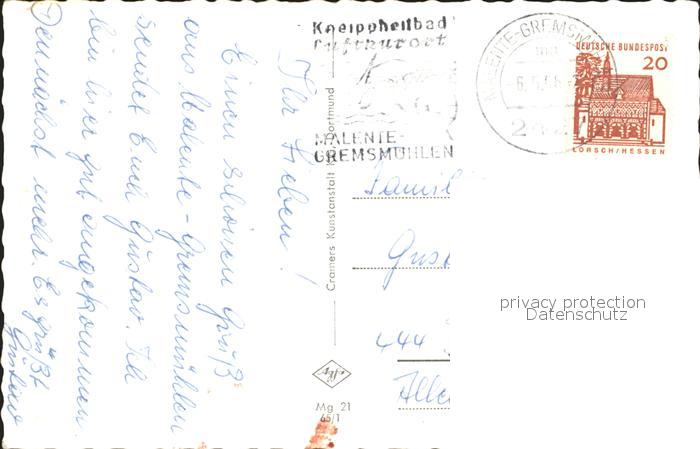 Ihr Lieben!
Einen schönen Gruß
aus Malente-Gremsmühlen
sendet Euch Gustav. Ich
bin hier gut angekommen.
Demnächst mehr. Es grüßt
Gustav
Kneippheilbad
Luftkurort
MALENTE-
GREMSMÜHLEN
MALENTE-GREMSM
6.5.
242
DEUTSCHE BUNDESPOST
20
LORSCH/HESSEN
Cramers Kunstanstalt KG, Dortmund
Mg 21
65/1
Famil
Gust
444
Alle
privacy protection
Datenschutz